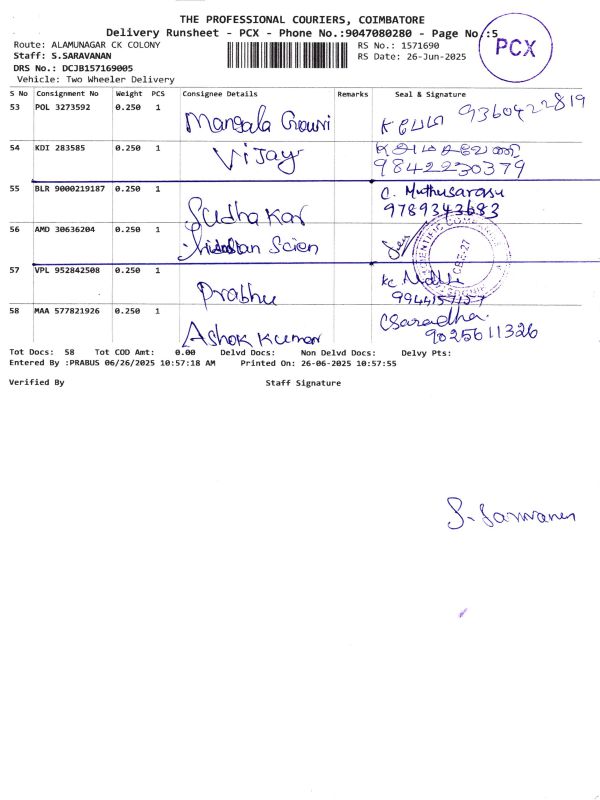 THE PROFESSIONAL COURIERS, COIMBATORE
Delivery Runsheet - PCX - Phone No.:9047080280 - Page No.:5
PCX
Route: ALAMUNAGAR CK COLONY
RS No.: 1571690
Staff: S.SARAVANAN
RS Date: 26-Jun-2025
DRS No.: DCJB157169005
Vehicle: Two Wheeler Delivery
S No Consignment No Weight PCS Consignee Details Remarks Seal & Signature
53 POL 3273592 0.250 1 Mangala Gowri 9360422819
54 KDI 283585 0.250 1 Vijay
9842230379
55 BLR 9000219187 0.250 1 Sudhakar C. Muthusarasu
9789343683
56 AMD 30636204 0.250 1 Hindustan Scien
CBE-27
57 VPL 952842508 0.250 1 Prabhu
9944157157
58 MAA 577821926 0.250 1 Ashok Kumar CSaradha.
9025611326
Tot Docs: 58 Tot COD Amt: 0.00 Delvd Docs: Non Delvd Docs: Delvy Pts:
Entered By :PRABUS 06/26/2025 10:57:18 AM Printed On: 26-06-2025 10:57:55
Verified By Staff Signature
S. Saravanan